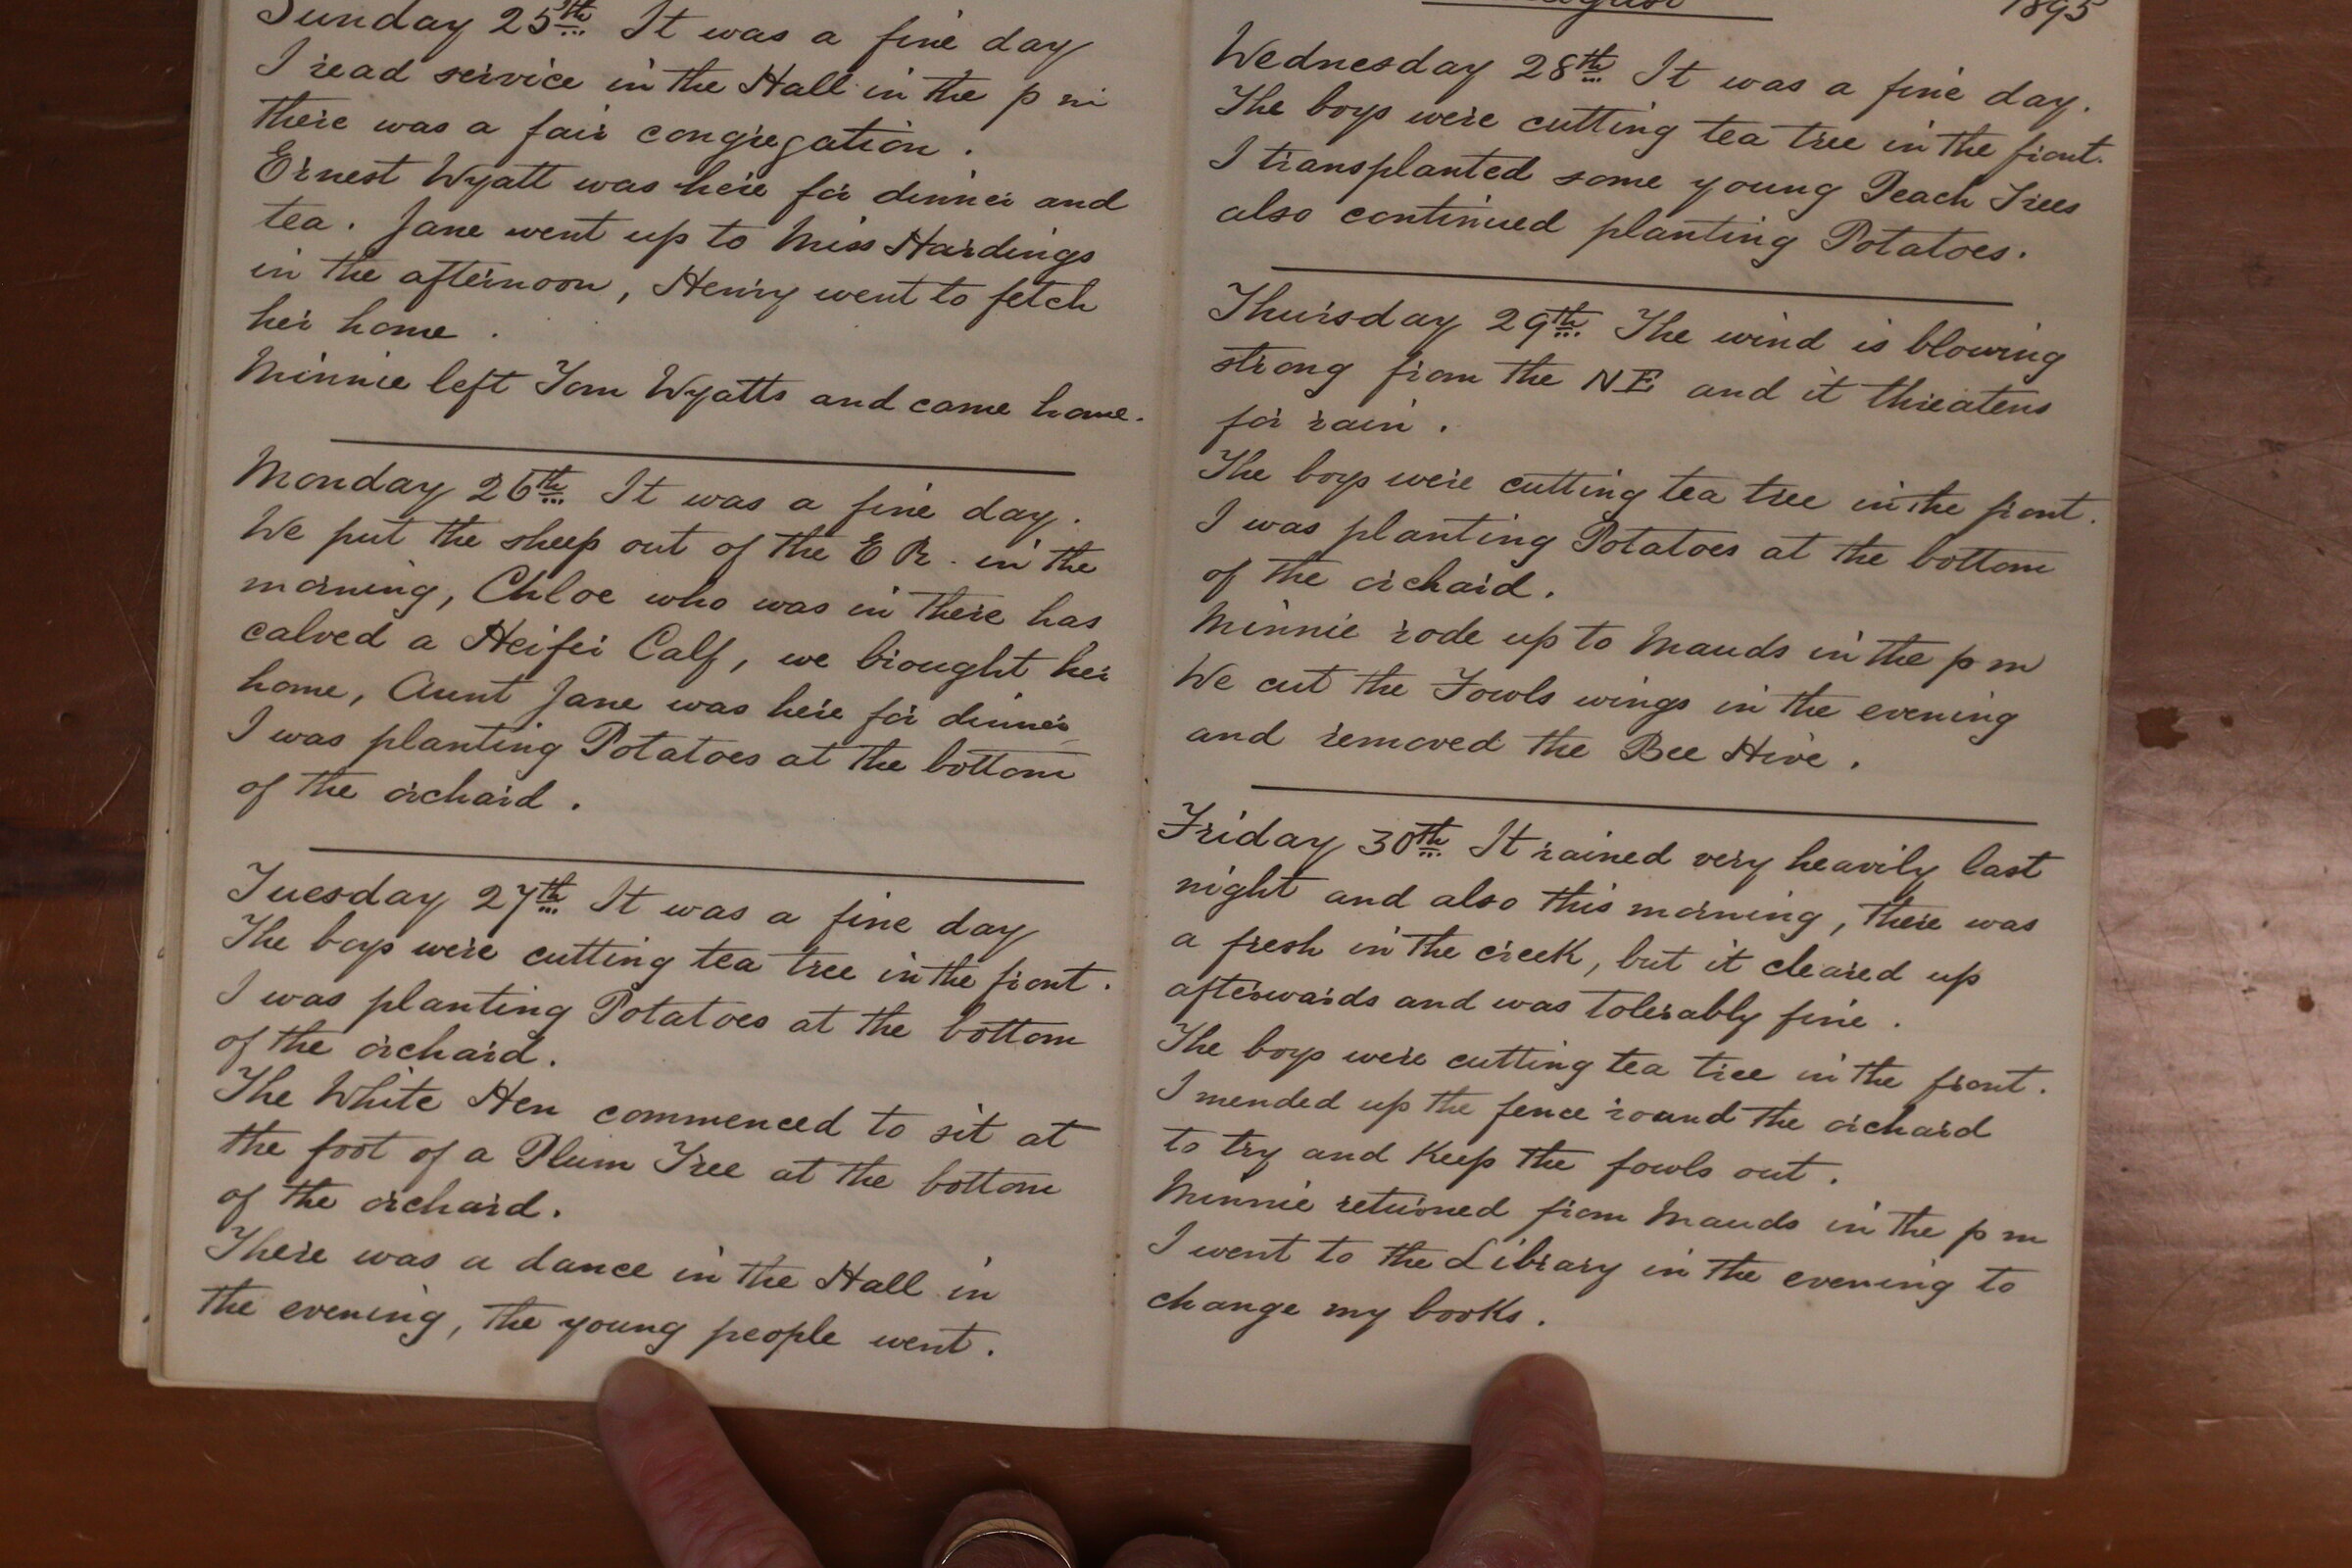 Sunday 25th It was a fine day
I read service in the Hall in the p m
there was a fair congregation.
Ernest Wyatt was here for dinner and
tea. Jane went up to Miss Hardings
in the afternoon, Henry went to fetch
her home.
Minnie left Tom Wyatts and came home.
Monday 26th It was a fine day.
We put the sheep out of the E R. in the
morning, Chloe who was in there has
calved a Heifer Calf, we brought her
home, Aunt Jane was here for dinner
I was planting Potatoes at the bottom
of the orchard.
Tuesday 27th It was a fine day
The boys were cutting tea tree in the front.
I was planting Potatoes at the bottom
of the orchard.
The White Hen commenced to sit at
the foot of a Plum Tree at the bottom
of the orchard.
There was a dance in the Hall in
the evening, the young people went.
August 1895
Wednesday 28th It was a fine day.
The boys were cutting tea tree in the front.
I transplanted some young Peach Trees
also continued planting Potatoes.
Thursday 29th The wind is blowing
strong from the NE and it threatens
for rain.
The boys were cutting tea tree in the front.
I was planting Potatoes at the bottom
of the orchard.
Minnie rode up to Mauds in the p m
We cut the Fowls wings in the evening
and removed the Bee Hive.
Friday 30th It rained very heavily last
night and also this morning, there was
a fresh in the creek, but it cleared up
afterwards and was tolerably fine.
The boys were cutting tea tree in the front.
I mended up the fence round the orchard
to try and Keep the fowls out.
Minnie returned from Mauds in the p m
I went to the Library in the evening to
change my books.